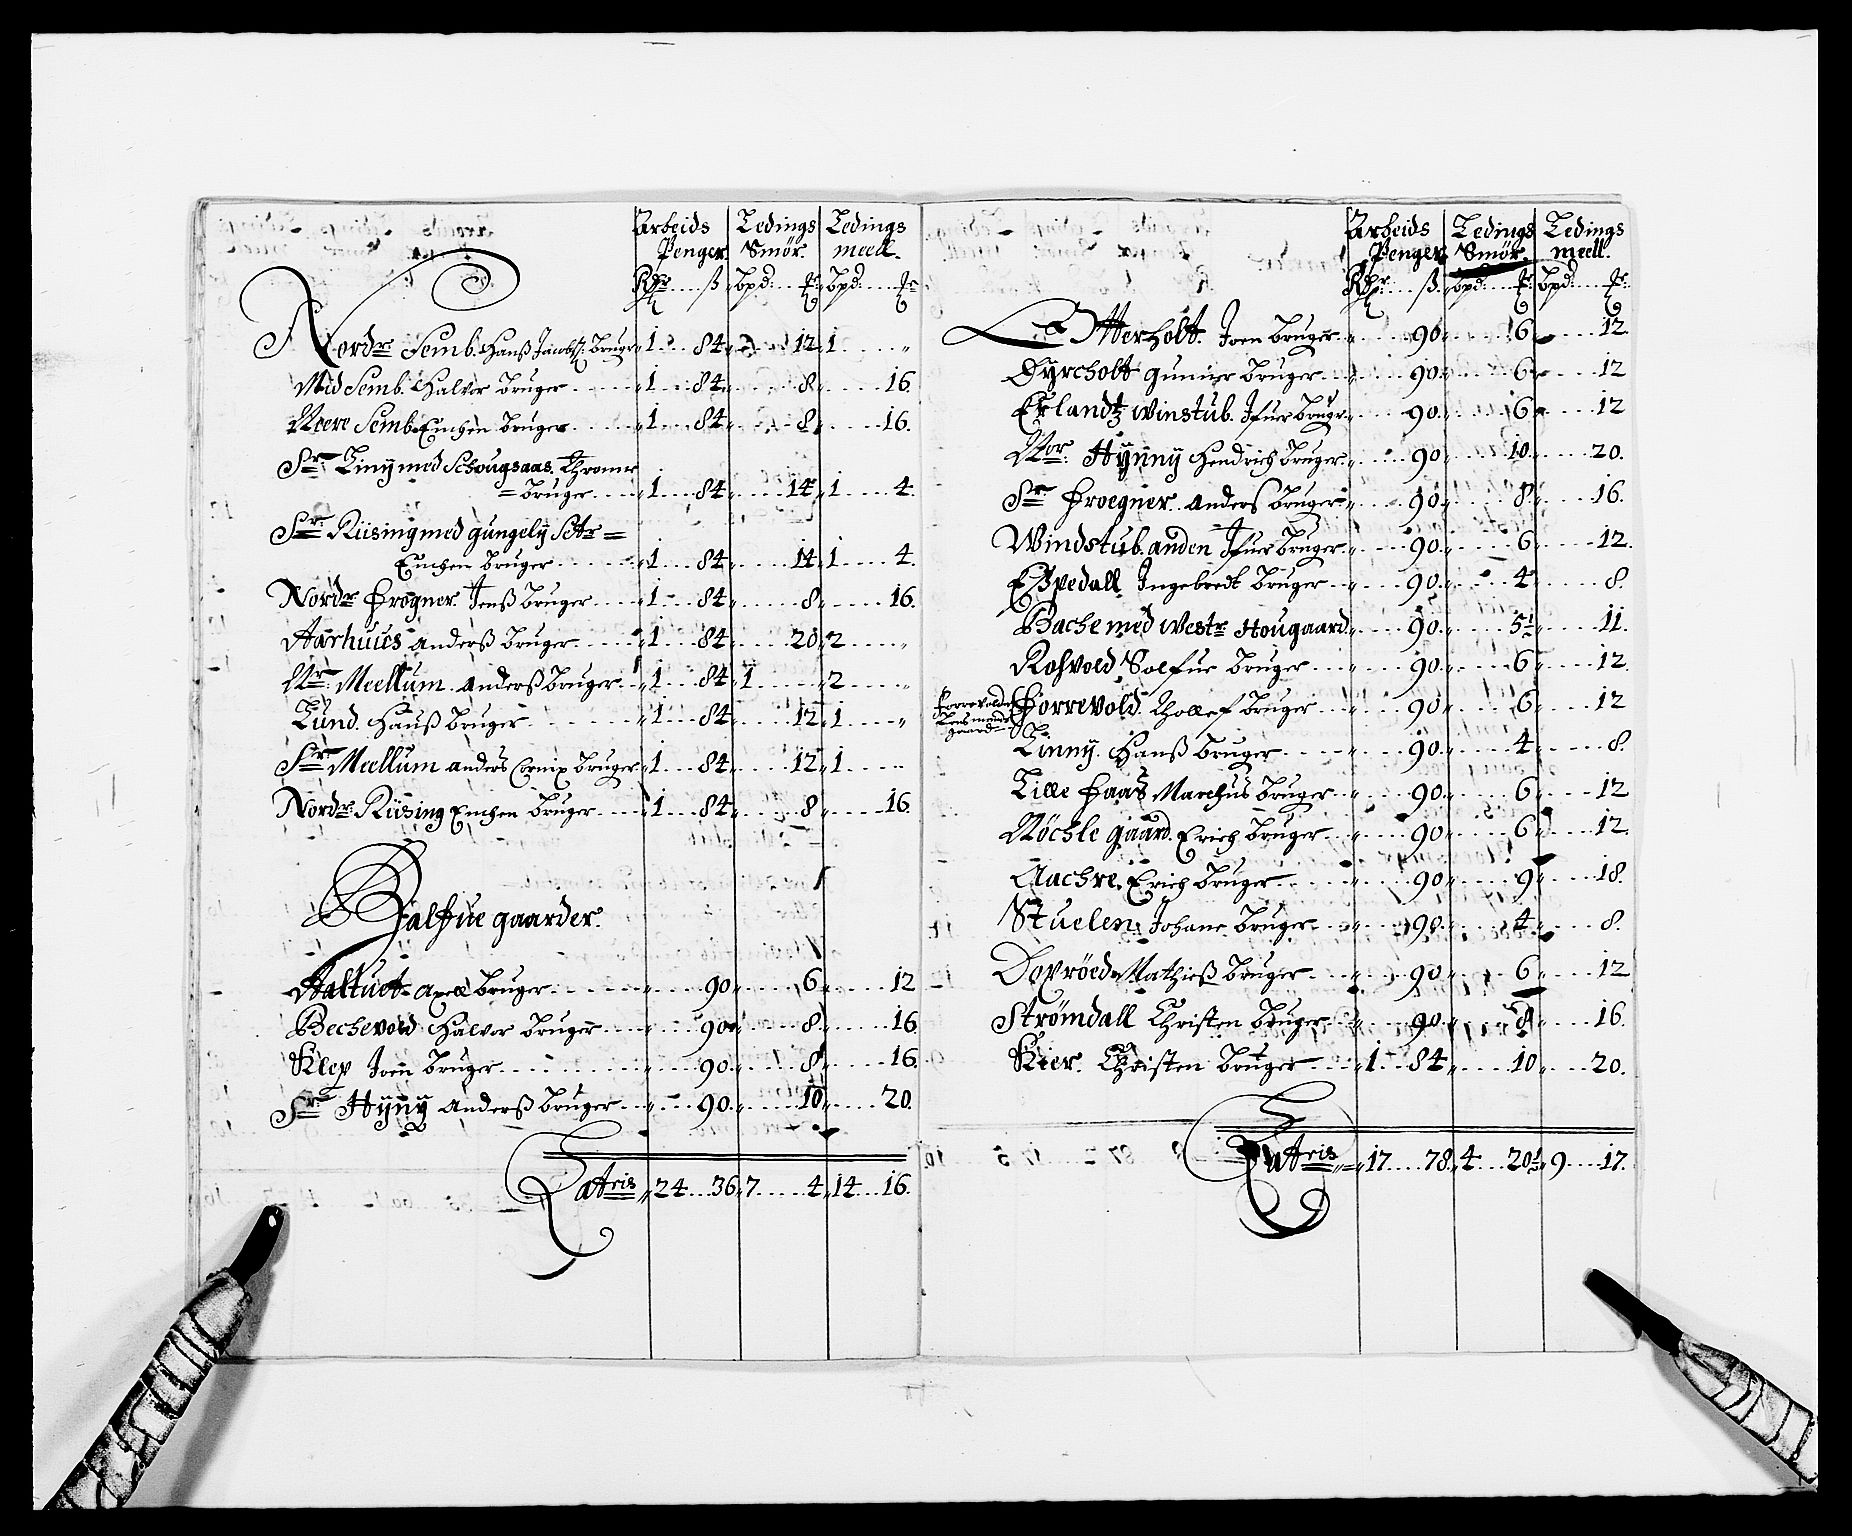 Arbeids Penger Ledings Smör Ledings meell
Rdr ß bpd ℔ bpd ℔
Nordr Semb. Hanß Jacobß: Bruger 1 84 12 1 "
Mid Semb. Halvor Bruger 1 84 8 16
Neere Semb Bruger 1 84 8 16.
Sr: Linij med Schougsaas.
= Bruger 1 84 14 1 4.
Sr: Riising med gungelij =
Bruger 1 84 14 1 4.
Nordr Frogner. Jenß Bruger 1 84 8 16.
Aarhuus anderß Bruger 1 84 20 2 "
Nr: Meellum. anderß Bruger 1 84 1 2 "
Lund. Hanß Bruger 1 84 12 1 "
Sr: Meellum anders Bruger 1 84 12 1
Nordr. Riising Bruger 1 84 8 16
Halfue gaarder.
Axell Bruger 90 6 12
Bechevold Halvor Bruger 90 8 16
Klep Joen Bruger 90 8 16.
Sr Hÿnÿ Anderß Bruger 90 10 20.
Latris 24 36 7 4 14 16.
Arbeids Penger Ledings Smör Ledings meell.
Rdr ß bpd ℔ bpd ℔
Otterholt. Joen Bruger 90 6 12.
Dyrcholt gunner Bruger 90 6 12
Eklandtz Winstub. Bruger 90 6 12
Nor: Hÿnnÿ Hendrich Bruger 90 10. 20.
Sr Froegner. Anders Bruger 90 8 16.
Windstub. anden Bruger 90 6 12.
Espedall Ingebredt Bruger 90 4 8.
Bache med Westr Hougaard 90 5½ 11.
Rosvold. Bruger 90 6 12
Forrevold Lensmands gaard
Forrevold. Bruger 90 6 12
Linnÿ. Hanß Bruger 90 4 8.
Lille Haas Marchus Bruger 90 6 12
Nöchle gaard. Erich Bruger 90 6 12.
Aachre. Erich Bruger 90 9 18.
Stuelen Johane Bruger 90 4 8.
Mathieß Bruger 90 6 12
Strömdall Christen Bruger 90 8 16.
Kier. Christen Bruger 1 84 10 20.
Latris 17 78 4 20½ 9 17.